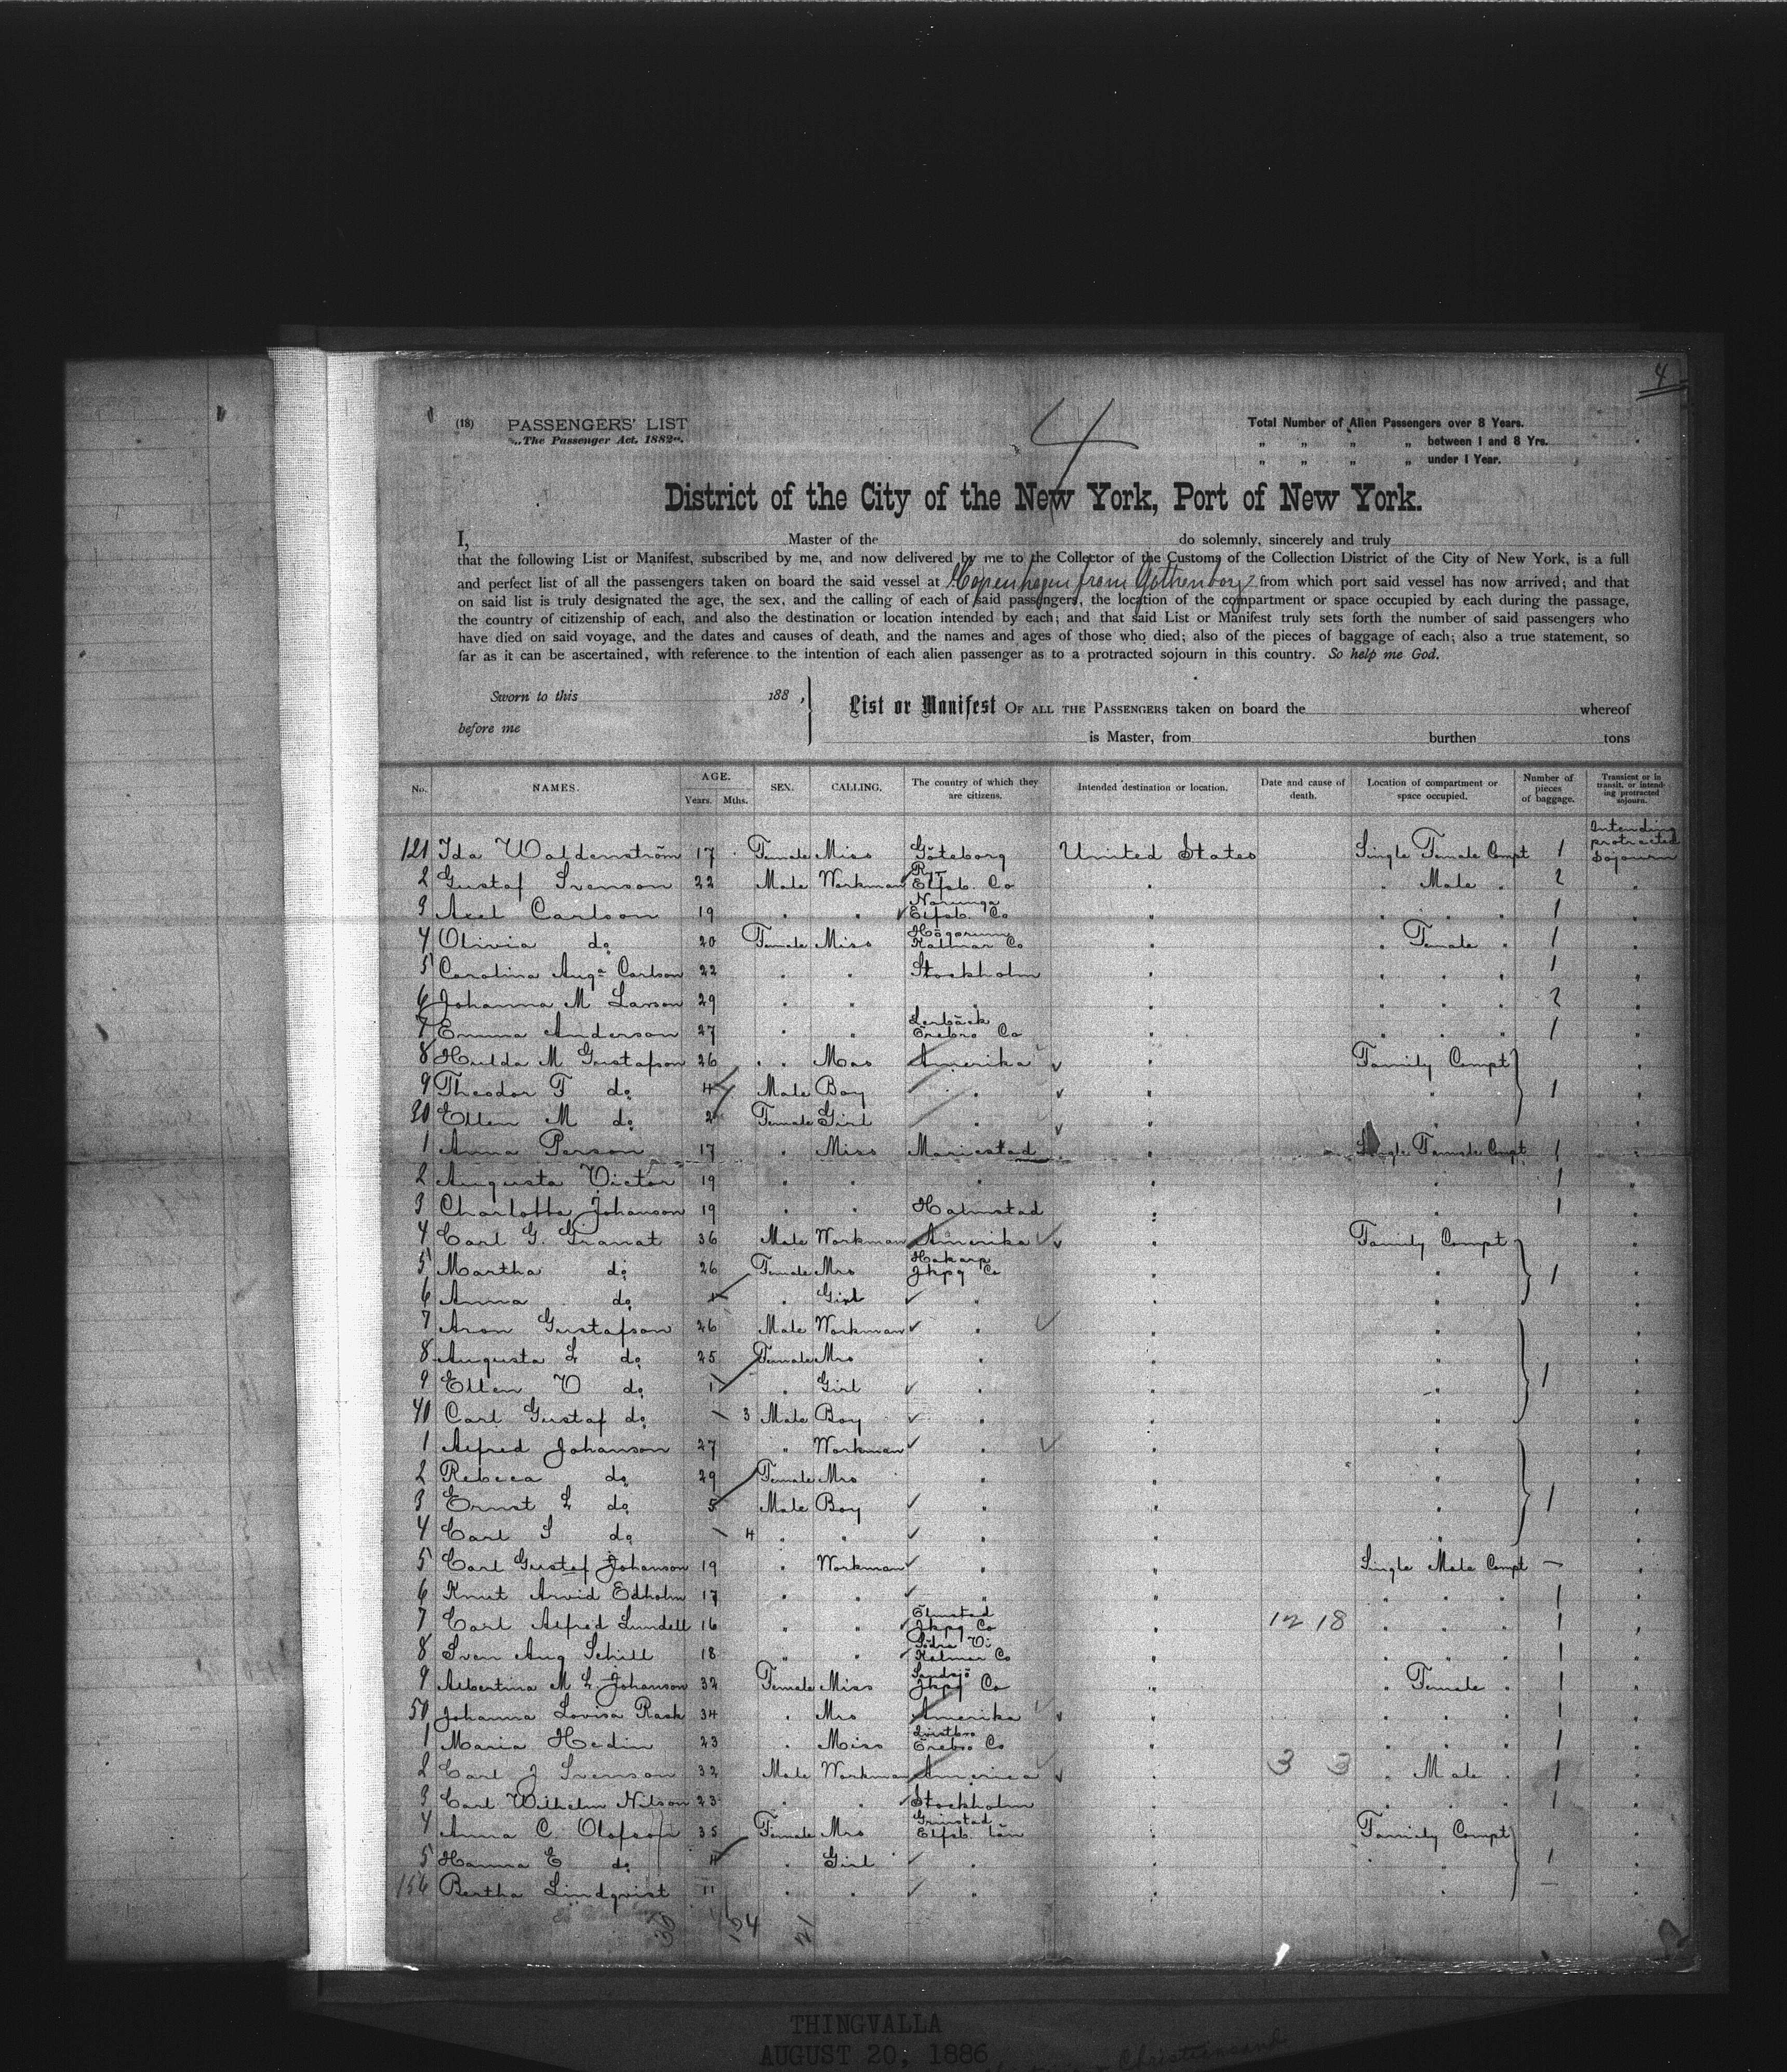 4
(18) PASSENGERS' LIST
„The Passenger Act. 1882“.
4
Total Number of Alien Passengers over 8 Years.
„ „ „ „ between 1 and 8 Yrs.
„ „ „ „ under 1 Year.
District of the City of the New York, Port of New York.
I, Master of the do solemnly, sincerely and truly
that the following List or Manifest, subscribed by me, and now delivered by me to the Collector of the Customs of the Collection District of the City of New York, is a full
and perfect list of all the passengers taken on board the said vessel at Copenhagen from Gothenborg from which port said vessel has now arrived; and that
on said list is truly designated the age, the sex, and the calling of each of said passengers, the location of the compartment or space occupied by each during the passage,
the country of citizenship of each, and also the destination or location intended by each; and that said List or Manifest truly sets forth the number of said passengers who
have died on said voyage, and the dates and causes of death, and the names and ages of those who died; also of the pieces of baggage of each; also a true statement, so
far as it can be ascertained, with reference to the intention of each alien passenger as to a protracted sojourn in this country. So help me God.
Sworn to this 188 ,
before me
List or Manifest OF ALL THE PASSENGERS taken on board the whereof
is Master, from burthen tons
No. NAMES. AGE. Years. Mths. SEX. CALLING. The country of which they are citizens. Intended destination or location. Date and cause of death. Location of compartment or space occupied. Number of pieces of baggage. Transient or in transit, or intending protracted sojourn.
121 Ida Waldenström 17 Female Miss Göteborg United States Single Female Compt 1 Intending protracted Sojourn
2 Gustaf Svenson 22 Male Workman Ry- Elfsb. Co " " Male " 2 "
3 Axel Carlson 19 " " Norunga Elfsb. Co " " " " 1 "
4 Olivia do 20 Female Miss Högorum Kalmar Co " " Female " 1 "
5 Carolina Auga Carlson 22 " " Stockholm " " " " 1 "
6 Johanna M Larson 29 " " " " " " " 2 "
7 Emma Anderson 27 " " Lerbäck Örebro Co " " " " 1 "
8 Hulda M Gustafson 26 " Mrs Amerika " Family Compt "
9 Theodor F do 4 Male Boy " " " 1 "
30 Ellen M do 2 Female Girl " " " "
1 Anna Person 17 " Miss Mariestad " Single Female Compt 1 "
2 Augusta Victor 19 " " " " " 1 "
3 Charlotta Johanson 19 " " Halmstad " " 1 "
4 Carl G. Granat 36 Male Workman Amerika " Family Compt "
5 Martha do 26 Female Mrs Hakarp Jkpg Co " " 1 "
6 Anna do 1 " Girl " " " "
7 Aron Gustafson 26 Male Workman " " " "
8 Augusta L do 25 Female Mrs " " " "
9 Ellen V do 1 " Girl " " " 1 "
40 Carl Gustaf do 3 Male Boy " " " "
1 Alfred Johanson 27 " Workman " " " "
2 Rebecca do 29 Female Mrs " " " "
3 Ernst L do 5 Male Boy " " " 1 "
4 Carl S do 4 " " " " " "
5 Carl Gustaf Johanson 19 " Workman " " Single Male Compt — "
6 Knut Arvid Edholm 17 " " " " " " " 1 "
7 Carl Alfred Lundell 16 " " Ölmstad Jkpg Co " 12 18 " " " 1 "
8 Sven Aug Schill 18 " " Södra Vi Kalmar Co " " " " 1 "
9 Albertina M L Johanson 32 Female Miss Sandsjö Jkpg Co " " Female " 1 "
50 Johanna Lovisa Rask 34 " Mrs Amerika " " " " 1 "
1 Maria Hedin 23 " Miss Örebro Co " " " " 1 "
2 Carl J Svenson 32 Male Workman America " 3 3 " Male " 1 "
3 Carl Wilhelm Nilson 23 " " Stockholm " " " " 1 "
4 Anna C. Olofson 35 Female Mrs Grinstad Elfsb. län " Family Compt "
5 Hanna E do 4 " Girl " " " 1 "
156 Bertha Lindqvist 11 " " " " " — "
THINGVALLA
AUGUST 20, 1886
Christiansand